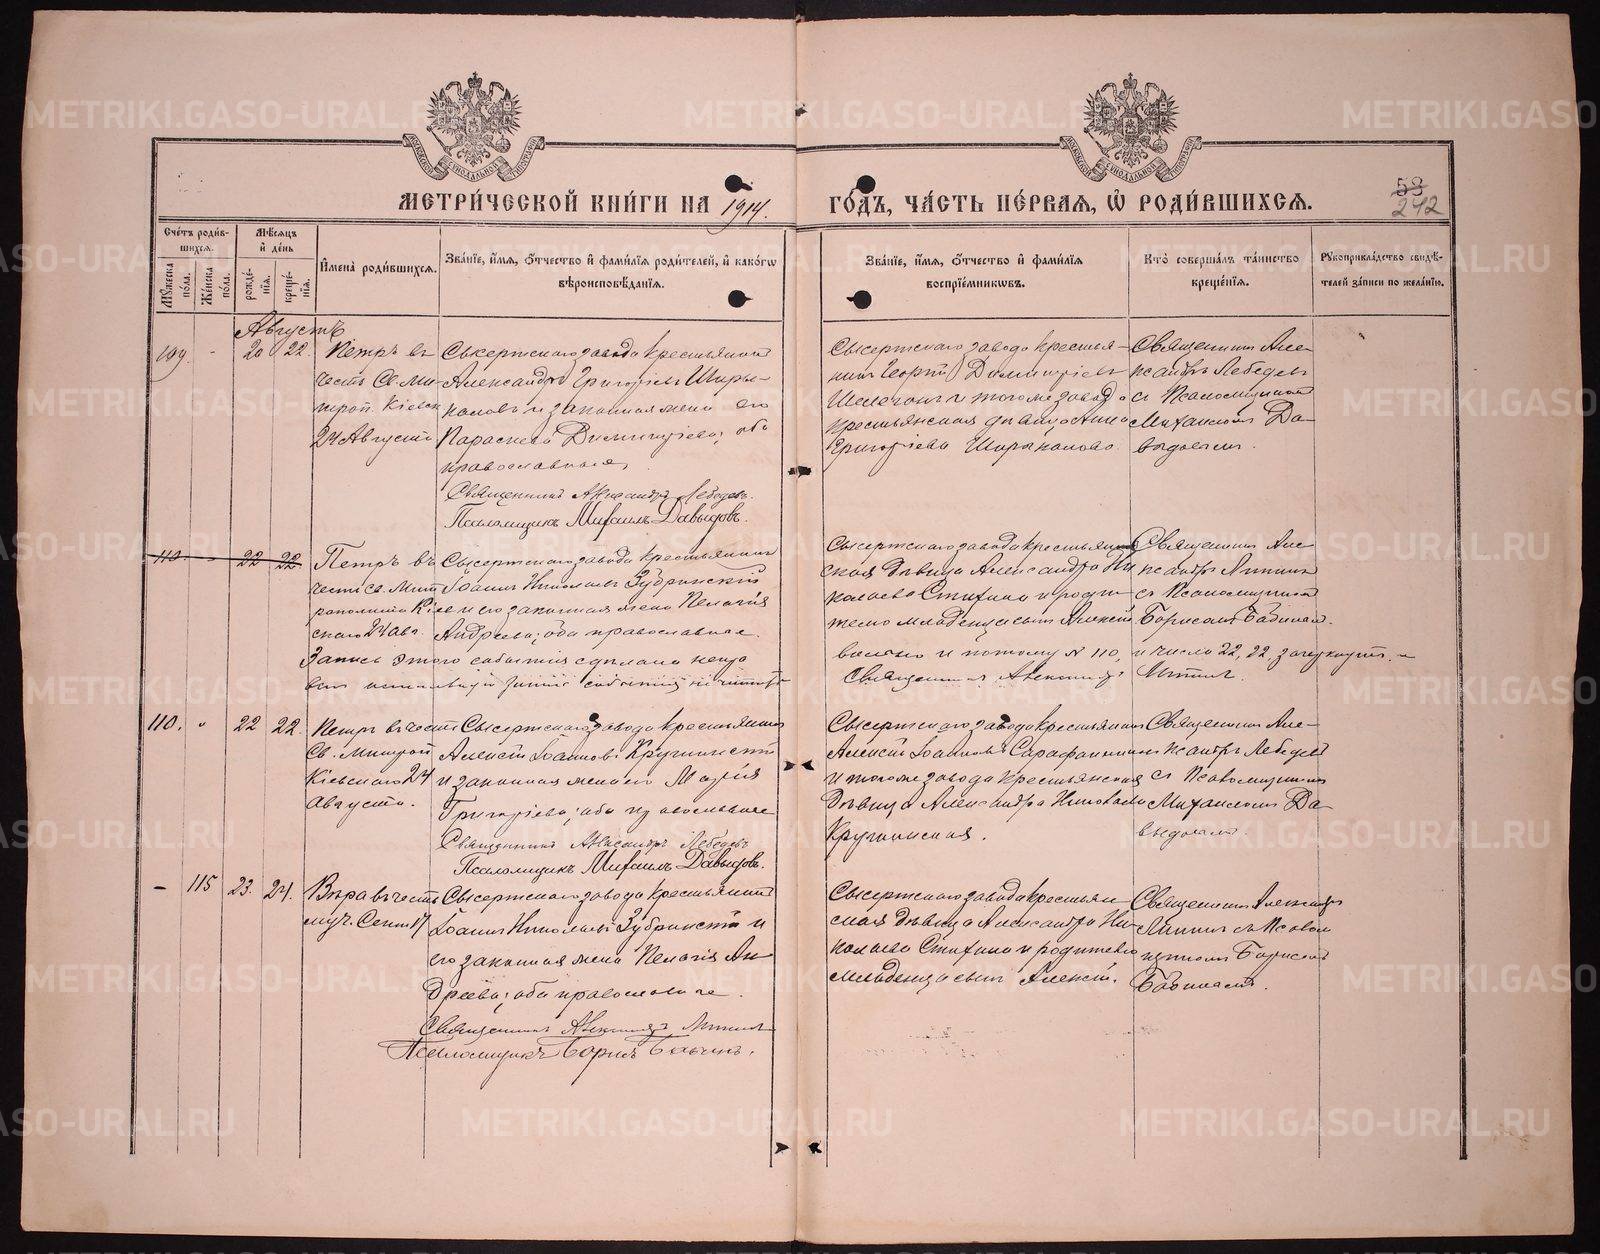 МЕТРИ́ЧЕСКОЙ КНИ́ГИ НА 1914.
ГО́ДЪ, ЧА́СТЬ ПЕ́РВАЯ, Ѡ РОДИ́ВШИХСЯ.
53
242
Сче́тъ роди́в-
шихся.
Мѣ́сяцъ
и҆ де́нь
Мꙋжеска
по́ла.
Же́нска
по́ла.
рожде́-
нїя.
креще́-
нїя.
И҆мена̀ роди́вшихся.
Зва́нїе, и҆́мя, ѻ҆́тчество и҆ фами́лїя роди́телей, и҆ како́гѡ
вѣроисповѣ́данїя.
Зва́нїе, и҆́мя, ѻ҆́тчество и҆ фами́лїя
воспрїе́мникѡвъ.
Кто̀ соверша́лъ та́инство
креще́нїя.
Рꙋкоприкла́дство свидѣ́-
телей за́писи по жела́нїю.
Августъ
109. - 20 22. Петръ въ
честь Св. Ми-
троп. Кіевск
24 Августа
Сысертскаго завода крестьянинъ
Александръ Григоріевъ Ширы-
каловъ и законная жена его
Параскева Димитріева; оба
православные,
Священникъ Александръ Лебедевъ.
Псаломщикъ Михаилъ Давыдовъ.
Сысертскаго завода крестья-
нинъ Георгій Димитріевъ
и того же завода
крестьянская дѣвица Анна
Григоріева Ширыкалова.
Священникъ Але-
ксандръ Лебедевъ
съ Псаломщикомъ
Михаиломъ Да-
выдовымъ.
110. - 22 22 Петръ въ
честь Св. Мит
рополита Кіев
скаго 24 Авг.
Сысертскаго завода крестьянинъ
Іоаннъ Николаевъ Зубринскій
и его законная жена Пелагія
Андреева; оба православные.
Сысертскаго завода крестьян
ская дѣвица Александра Ни
колаева Стихина и роди
теля младенца сынъ Алексій
Священникъ Але
ксандръ
съ Псаломщикомъ
Борисомъ Бабинымъ.
Запись этого событія сдѣлана непра
и потому № 110, и числа 22, 22 зачеркнуты.
Священникъ Александръ
110. " 22 22. Петръ въ честь
Св. Митроп
Кіевскаго 24
Августа.
Сысертскаго завода крестьянинъ
Алексій Іоанновъ Кручинскій
и законная жена его Марія
Григоріева; оба православные
Священникъ Александръ Лебедевъ
Псаломщикъ Михаилъ Давыдовъ.
Сысертскаго завода крестьянинъ
Алексій Іоанновъ Сарафанниковъ
и того же завода крестьянская
дѣвица Александра Николаева
Кручинская.
Священникъ Але-
ксандръ Лебедевъ
съ Псаломщикомъ
Михаиломъ Да-
выдовымъ.
- 115 23. 24. Вѣра въ честь
муч. Сент. 17
Сысертскаго завода крестьянинъ
Іоаннъ Николаевъ Зубринскій и
его законная жена Пелагія Ан-
дреева; оба православные.
Священникъ Александръ
Псаломщикъ Борисъ Бабинъ.
Сысертскаго завода крестьян-
ская дѣвица Александра Ни-
колаева Стихина и родителя
младенца сынъ Алексій.
Священникъ Александръ
съ Псалом
щикомъ Борисомъ
Бабинымъ.
METRIKI.GASO-URAL.RU